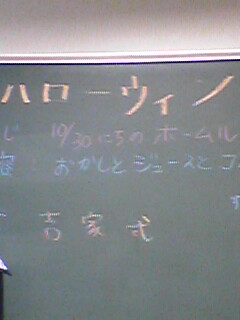 ハローウィン
じ 10/30 に5の ホームル
容 おかしと ジュースと コ
吉 家 式